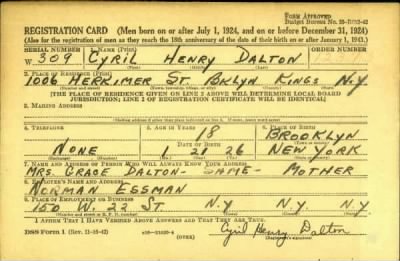 Form Approved
REGISTRATION CARD—(Men born on or after July 1, 1924, and on or before December 31, 1924)
(Also for the registration of men as they reach the 18th anniversary of the date of their birth on or after January 1, 1943.)
SERIAL NUMBER 1. NAME (Print) ORDER NUMBER
W 309 CYRIL HENRY DALTON
2. PLACE OF RESIDENCE (Print)
1006 HERKIMER ST. BKLYN KINGS N.Y.
[THE PLACE OF RESIDENCE GIVEN ON LINE 2 ABOVE WILL DETERMINE LOCAL BOARD
JURISDICTION; LINE 2 OF REGISTRATION CERTIFICATE WILL BE IDENTICAL]
3. MAILING ADDRESS
4. TELEPHONE 5. AGE IN YEARS 6. PLACE OF BIRTH
18 BROOKLYN
DATE OF BIRTH
NONE 1 21 26 NEW YORK
7. NAME AND ADDRESS OF PERSON WHO WILL ALWAYS KNOW YOUR ADDRESS
MRS. GRACE DALTON- SAME- MOTHER
8. EMPLOYER'S NAME AND ADDRESS
NORMAN ESSMAN
9. PLACE OF EMPLOYMENT OR BUSINESS
150 W. 22 ST. N.Y N.Y N.Y.
I AFFIRM THAT I HAVE VERIFIED ABOVE ANSWERS AND THAT THEY ARE TRUE.
DSS Form 1 Cyril Henry Dalton
(Registrant's signature)